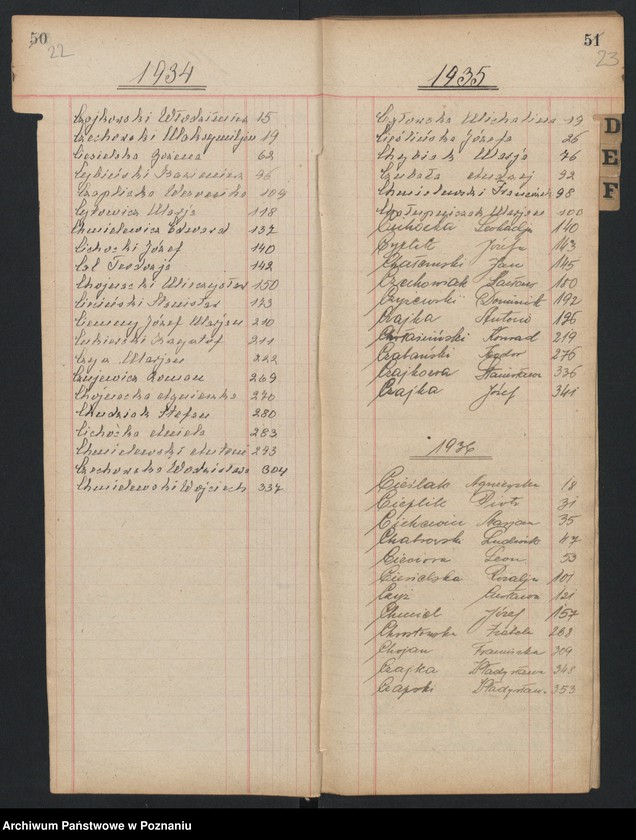 50
22
1934
Czajkowski Włodzimierz 15
Czechowski Maksymiljan 19
Ciesielska Bożena 62
Cybiński Kazimierz 96
Czaplicka Weronika 104
Cytowicz Marja 118
Chmielewicz Edward 137
Cichocki Józef 140
Cal Teodozja 142
Chojnacki Mieczysław 150
Ciciński Stanisław 173
Ciemny Józef Marjan 210
Cukierski Krzysztof 211
Czyż Marjan 222
Czujewicz Roman 269
Chojnacka Agnieszka 270
Chudziak Stefan 280
Cichocka Aniela 283
Chmielewski Antoni 293
Czechowska Władzisława 304
Chmielewski Wojciech 337
51
23
1935
Michalina 19
Cieślińska Józefa 26
Chybiak Marja 76
Czubała Andrzej 92
Chmielewski Franciszek 98
Marjan 100
Cichocka Leokadja 140
Cyplet Józefa 143
Jan 145
Czechowiak Wacław 180
Czyżewski Dominik 192
Czajka Antoni 196
Konrad 219
Czabański Teodor 276
Czajkowa Stanisława 336
Czajka Józef 341
D
E
F
1936
Cieślak Agnieszka 18
Cieplik Piotr 31
Cichowicz Marjan 35
Chabrowski Ludwik 47
Cieciora Leon 53
Ciesielska Rozalja 101
Czyż Gustawa 121
Chmiel Józef 157
Chrostowska Izabela 288
Chojan Franciszka 309
Czajka Władysława 348
Czapski Władysław 353
Archiwum Państwowe w Poznaniu